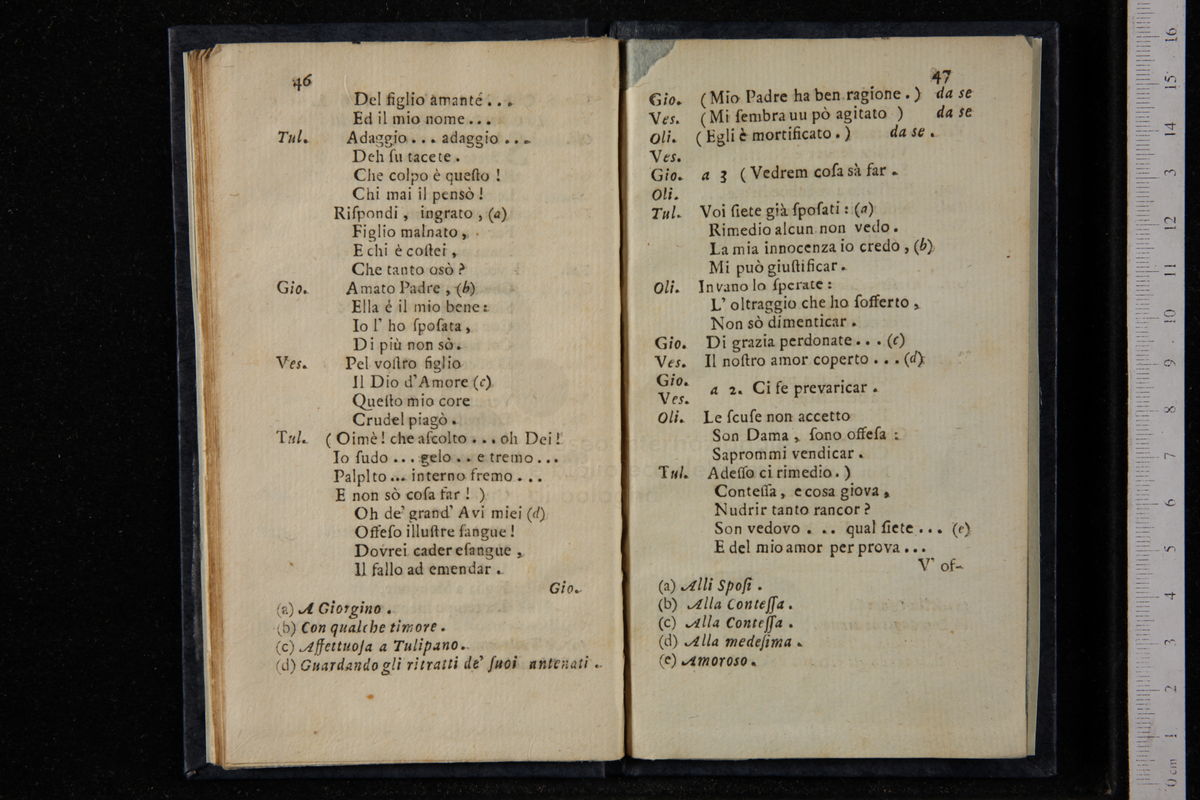 46
Del figlio amanté . . .
Ed il mio nome . . .
Tul. Adaggio . . . adaggio . . .
Deh ſu tacete .
Che colpo è queſto !
Chi mai il pensò !
Riſpondi , ingrato , (a)
Figlio malnato ,
E chi è coſtei ,
Che tanto osò ?
Gio. Amato Padre , (b)
Ella é il mio bene :
Io l' ho ſpoſata ,
Di più non sò .
Ves. Pel voſtro figlio
Il Dio d'Amore (c)
Queſto mio core
Crudel piagò .
Tul. ( Oimè ! che aſcolto . . . oh Dei !
Io ſudo . . . gelo . . e tremo . . .
Palplto ... interno fremo . . .
E non sò coſa far ! )
Oh de' grand' Avi miei (d)
Offeſo illuſtre ſangue !
Dovrei cader eſangue ,
Il fallo ad emendar .
Gio.
(a) A Giorgino .
(b) Con qualche timore .
(c) Affettuoſa a Tulipano .
(d) Guardando gli ritratti de' ſuoi antenati .
47
Gio. ( Mio Padre ha ben ragione . ) da se
Ves. ( Mi ſembra uu pò agitato ) da se
Oli. ( Egli è mortificato . ) da se .
Ves.
Gio. a 3 ( Vedrem coſa sà far .
Oli.
Tul. Voi ſiete già ſpoſati : (a)
Rimedio alcun non vedo .
La mia innocenza io credo , (b)
Mi può giuſtificar .
Oli. Invano lo ſperate :
L' oltraggio che ho ſofferto ,
Non sò dimenticar .
Gio. Di grazia perdonate . . . (c)
Ves. Il noſtro amor coperto . . . (d)
Gio.
a 2. Ci fe prevaricar .
Ves.
Oli. Le ſcuſe non accetto
Son Dama , ſono offeſa :
Saprommi vendicar .
Tul. Adeſſo ci rimedio . )
Conteſſa , e cosa giova ,
Nudrir tanto rancor ?
Son vedovo . . . qual ſiete . . . (e)
E del mio amor per prova . . .
V' of-
(a) Alli Spoſi .
(b) Alla Conteſſa .
(c) Alla Conteſſa .
(d) Alla medeſima .
(e) Amoroso .